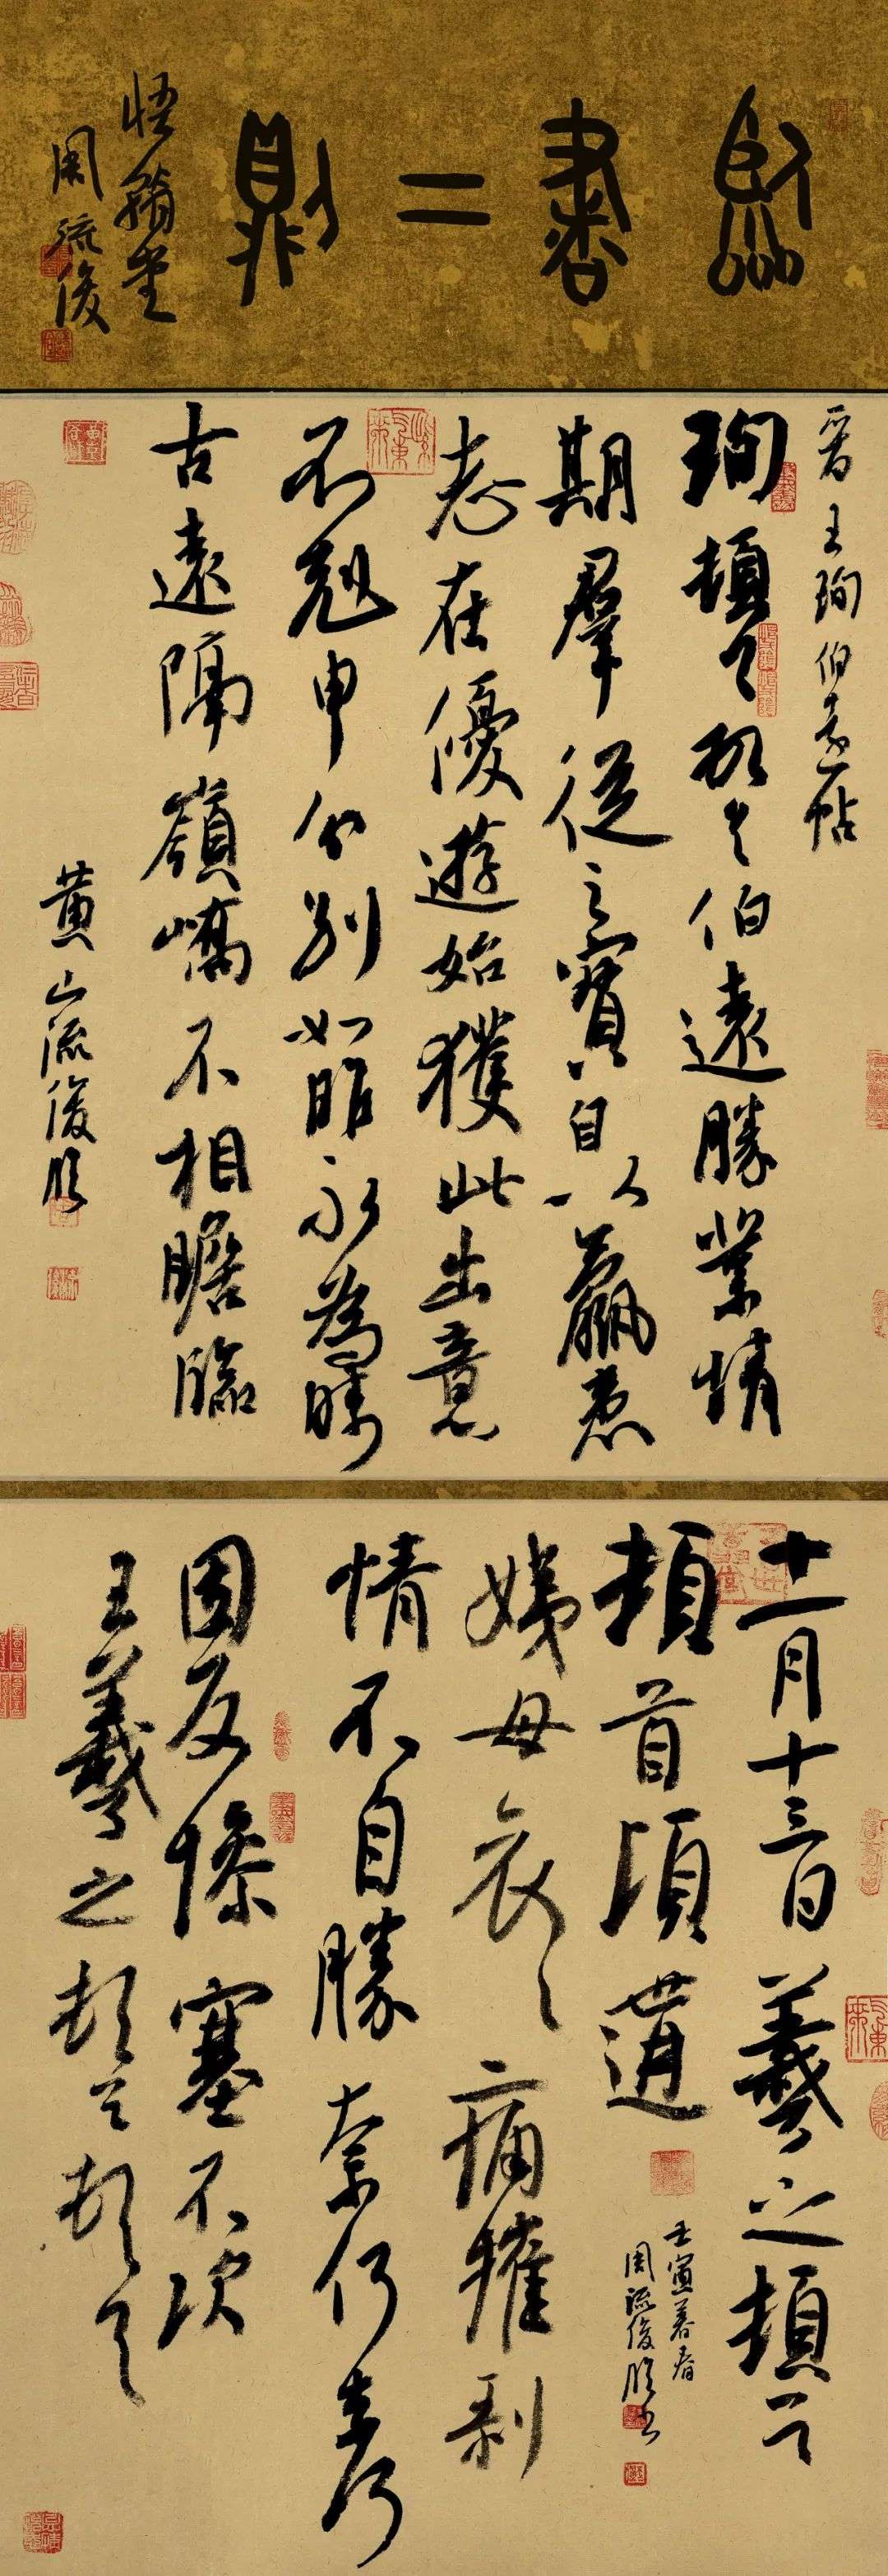 臨書二則
悟堂
周流俊
晋王珣伯遠帖
珣頓首頓首伯遠勝業情
期羣從之寶自以羸患
志在優遊始獲此出意
不尅申分別如昨永為疇
古遠隔嶺嶠不相瞻臨
黄山流俊臨
十一月十三日羲之頓首
頓首頃遘
壬寅暮春
周流俊臨書
姨母哀〻痛摧剥
情不自勝奈何奈何
因反慘塞不次
王羲之頓首頓首